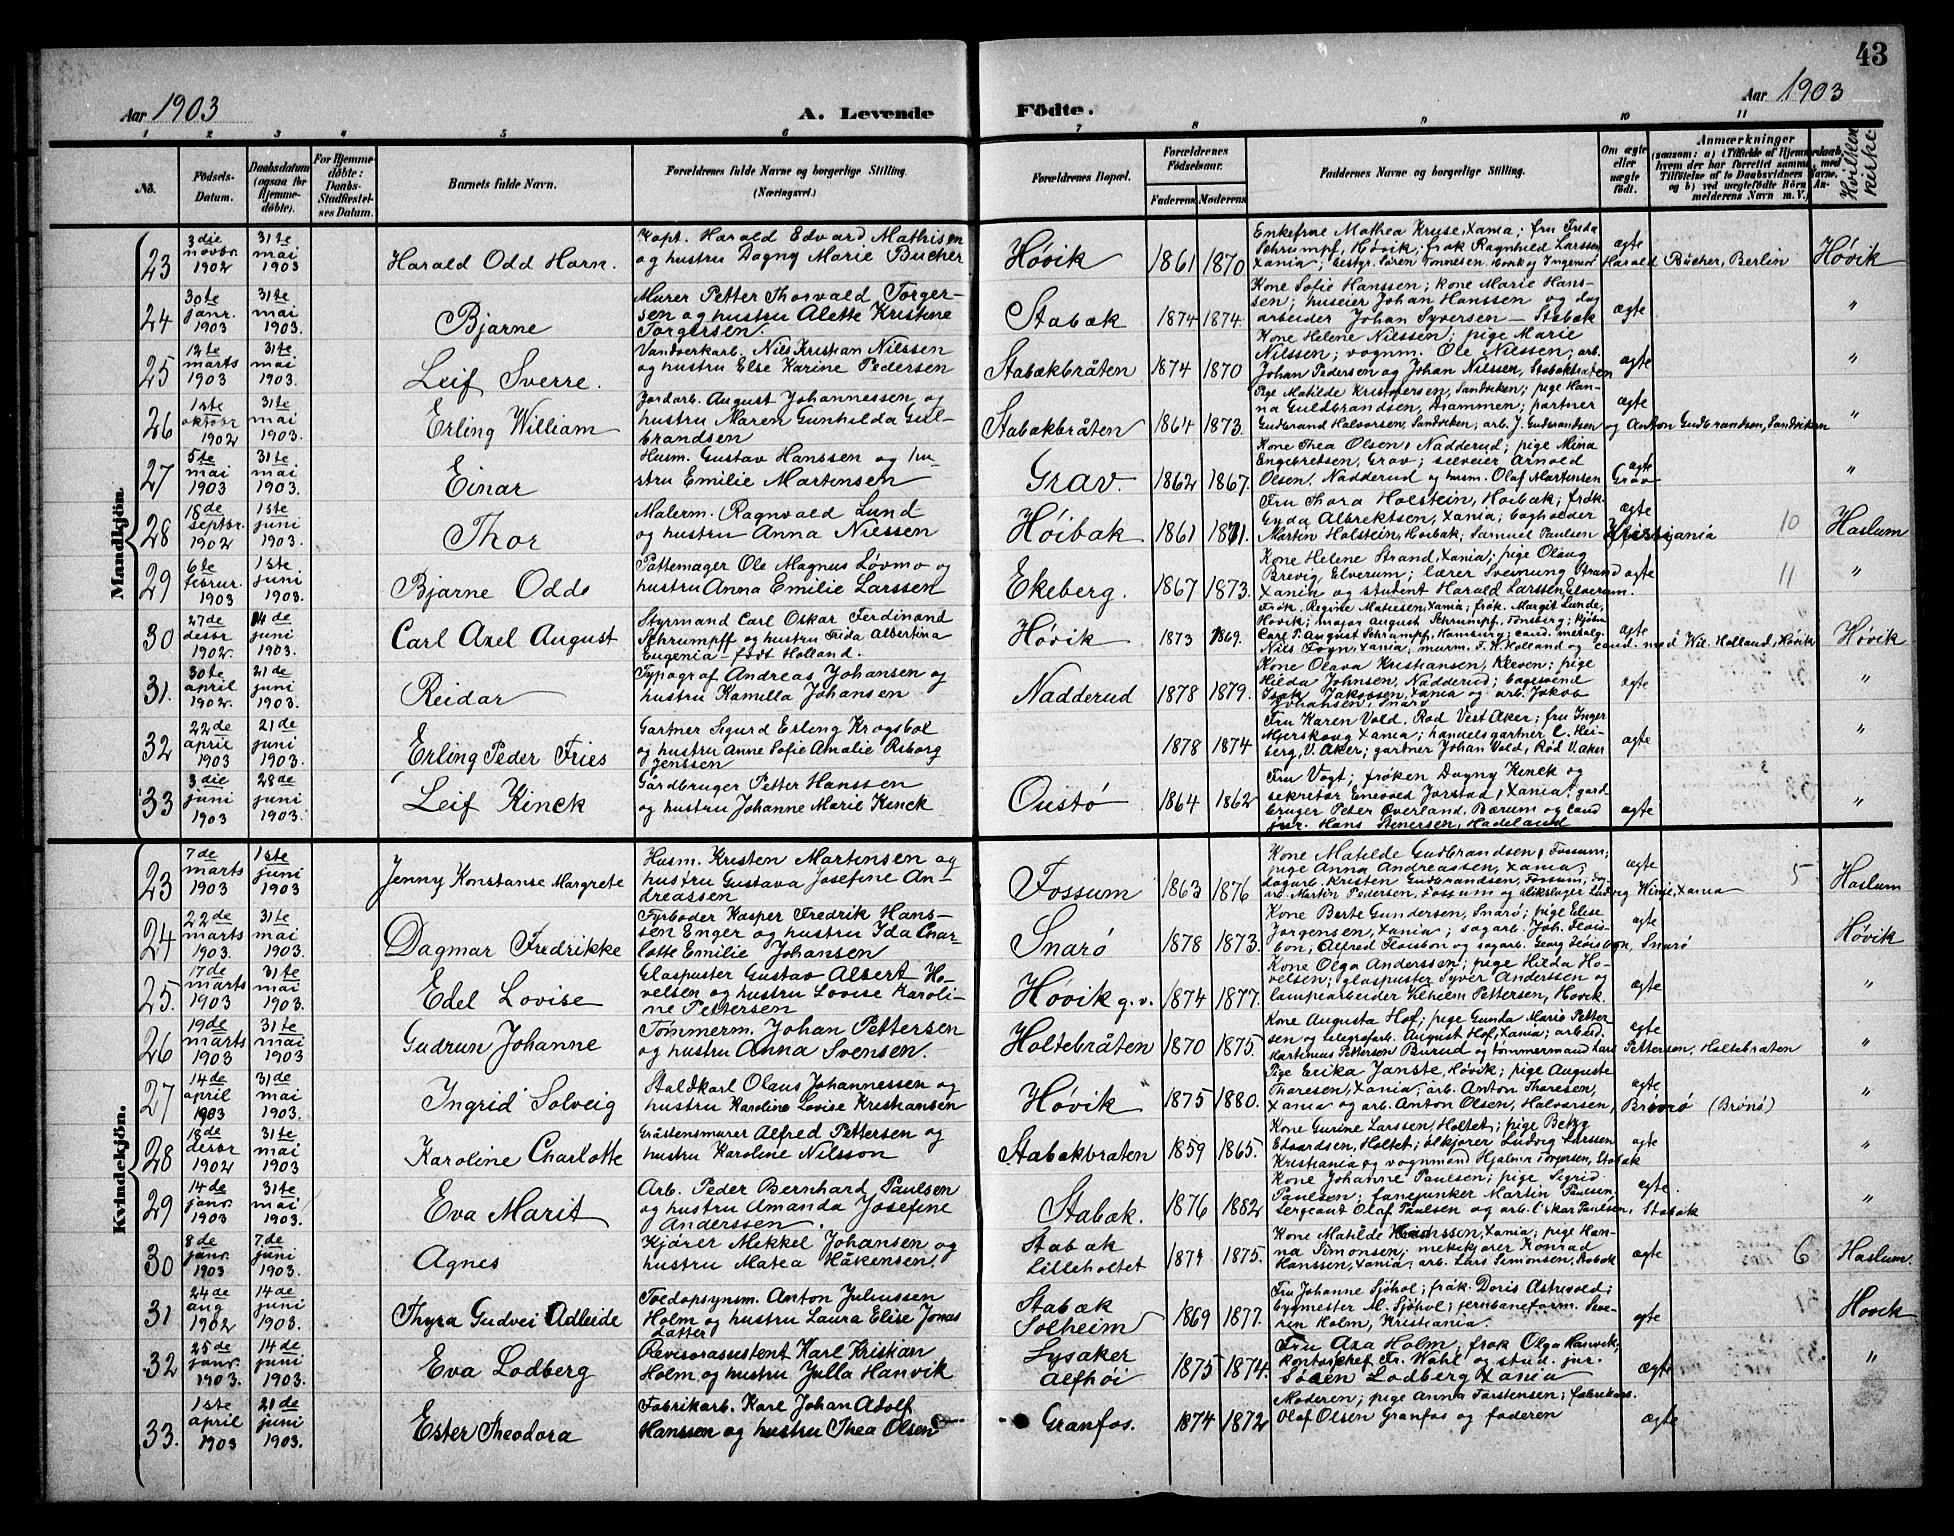 43
Aar 1903 A. Levende Födte. Aar 1903
1 2 3 4 5 6 7 8 9 10 11
No. Födsels-Datum. Daabsdatum (ogsaa for Hjemme-döbte). For Hjemme-döbte: Daabs-Stadfæstel-ses Datum. Barnets fulde Navn. Forældrenes fulde Navne og borgerlige Stilling. (Næringsvei.) Forældrenes Bopæl. Forældrenes Födselsaar. Faderens Moderens Faddernes Navne og borgerlige Stilling. Om ægte eller uægte födt. Anmærkninger Hvilken Kirke.
Mandkjön.
23 3die novbr. 1902 31te mai 1903 Harald Odd Horn.
Kapt. Harald Edvard Mathisen
og hustru Dagny Marie Bucher
Høvik 1861 1870
Enkefrue Mathea Kruse, Xania; fru Frida
Schrumpf, Høvik; frøk Ragnhild Larssen
Xania; Bestyr. Søren Tønnesen, Høvik og Ingeniør Harald Bücher, Berlin
ægte Høvik
24 30te janr. 1903 31te mai 1903 Bjarne
Murer Petter Thorvald Torger-
sen og hustru Alette Kristine
Torgersen.
Stabæk 1874 1874.
Kone Sofie Hanssen; kone Marie Hans-
sen; huseier Johan Hanssen og dag
arbeider Johan Syversen – Stabæk
ægte "
25 12te marts 1903 31te mai 1903. Leif Sverre.
Vandverkarb. Nils Kristian Nilssen
og hustru Else Karine Pedersen
Stabækbråten 1874 1870
Kone Helene Nilssen; pige Marie
Nilssen; vognm. Ole Nilssen; arb.
Johan Pedersen og Johan Nilssen, Stabækbråten
ægte "
26 1ste oktobr 1902 31te mai 1903. Erling William
Jordarb. August Johannessen og
hustru Maren Gunhilda Gul-
brandsen
Stabækbråten 1864 1873.
Pige Matilde Kristofersen, Sandviken; pige Han-
na Guldbrandsen, Drammen; partner
Gudbrand Halvorsen, Sandviken; arb. J. Gudbrandsen og Anton Gudbrandsen, Sandviken
ægte "
27 5te mai 1903 31te mai 1903. Einar
Husm. Gustav Hanssen og hu-
stru Emilie Martensen
Grav. 1862 1867.
Kone Thea Olsen, Nadderud; pige Mina
Engebretsen, Grav; selveier Arnold
Olsen, Nadderud og husm. Olaf Martensen Grav
ægte "
28 18de septbr. 1902 1ste juni 1903. Thor
Malerm. Ragnvald Lund
og hustru Anna Niessen
Høibak 1861 1871.
Fru Thora Holstein, Høibæk; frøk.
Gyda Albrektsen, Xania; bogholder
Martin Holstein, Høibæk; Samuel Paulsen Kristiania
ægte 10 Haslum
29 6te februr. 1903 1ste juni 1903. Bjarne Odd
Pottemager Ole Magnus Løvmo og
hustru Anna Emilie Larssen
Ekeberg. 1867 1873.
Kone Helene Strand, Xania; pige Olaug
Brevig, Elverum; lærer Sveinung Strand
Xania og student Harald Larsten, Elverum.
ægte 11 "
30 27de desbr 1902. 14de juni 1903. Carl Axel August
Styrmand Carl Oskar Ferdinand
Schrumpff og hustru Frida Albertina
Eugenia – født Holland.
Høvik 1873 1869.
Frøk. Regine Mathiesen, Xania; frøk. Margit Lunde,
Høvik; major August Schrumpf, Tønsberg; kjøbm
Carl T. August Schrumpf, Hamburg; cand. meralog.
Nils Fogn, Xania, murm. F. H. Holland og cand. med Wil. Holland, Høvik
ægte Høvik
31. 30te april 1902. 21de juni 1903. Reidar
Typograf Andreas Johansen og
hustru Kamilla Johansen
Nadderud 1878 1879.
Kone Olava Kristiansen, Kleven; pige
Hilda Johnsen, Nadderud; bagesvend
Isak Jakobsen, Xania og arb. Jakob
Johansen, Snarø
ægte "
32 22de april 1903 21de juni 1903. Erling Peder Fries
Gartner Sigurd Erling Krogsbøl
og hustru Anne Sofie Amalie Riborg
Jenssen
1878 1874
Fru Karen Vold. Rød Vest Aker; fru Inger
Mjerskaug Xania; handelsgartner C. Hei-
berg, V. Aker; gartner Johan Vold, Rød V. aker
ægte "
33 3die juni 1903 28de juni 1903. Leif Kinck
Gårdbruger Petter Hanssen
og hustru Johanne Marie Kinck
Oustø 1864 1862
Fru Vogt; frøken Dagny Kinck og
sekretær Enevold Jorstad, Xania; gard
bruger Peter Øverland, Bærum og cand
jur. Hans Stenersen, Hadeland
ægte "
Kvindekjön.
23 7de marts 1903 1ste juni 1903 Jenny Konstanse Margrete
Husm. Kristen Martinsen og
hustru Gustava Josefine An-
dreassen
Fossum 1863 1876
Kone Matilde Gudbrandsen, Fossum;
pige Anna Andreassen, Xania;
dagarb. Kristen Gudbrandsen, Fossum; og
arb. Martin Pedersen, Fossum og blikslager Ludvig Winje, Xania
ægte 5 Haslum
24 22de marts 1903. 31te mai 1903. Dagmar Fredrikke
Fyrbøder Kasper Fredrik Hans-
sen Enger og hustru Ida Char-
lotte Emilie Johansen
Snarø 1878 1873.
Kone Berte Gundersen, Snarø; pige Elise
Jørgensen, Xania; sagarb. Joh. Fløis-
bon; Alfred Fløisbon og sagarb. Georg Fløisbon, Snarø
ægte Høvik
25. 17de marts 1903 31te mai 1903. Edel Lovise
Glaspuster Gustav Albert Ho-
velsen og hustru Lovise Karoli-
ne Pettersen
Høvik g.v. 1874 1877.
Kone Olga Anderssen; pige Hilda Ho-
velsen; glaspuster Syver Anderssen og
lampearbeider Vilhelm Pettersen, Høvik.
ægte "
26 19de marts 1903 31te mai 1903 Gudrun Johanne
Tømmerm. Johan Pettersen
og hustru Anna Svensen.
Holtebråten 1870 1875.
Kone Augusta Hof; pige Gunda Marie Petter
sen og telegrafarb. August Hof, Xania; arbeid.
Martinus Pettersen Burud og tømmermand Lars Pettersen, Holtebråten
ægte "
27 14de april 1903 31de mai 1903. Ingrid Solveig
Staldkarl Olaus Johannessen og
hustru Karoline Lovise Kristiansen
Høvik 1875 1880.
Pige Erika Janste, Høvik; pige Auguste
Thoresen, Xania; arb. Anton Thoresen,
Xania og arb. Anton Olsen, Halvorsen, Brønø (Brønø)
ægte "
28 18de desbr 1902 31te mai 1903 Karoline Charlotte
Gråstensmurer Alfred Pettersen og
hustru Karoline Nilsson
Stabækbråten 1859 1865.
Kone Gurine Larssen, Holtet; pige Betzy
Edvardsen, Holtet; ølkjører Ludvig Larssen
Kristiania og vognmand Hjalmar Torgersen, Stabæk
ægte "
29 14de janr. 1903 31te mai 1903. Eva Marit
Arb. Peder Bernhard Paulsen
og hustru Amanda Josefine
Anderssen.
Stabæk. 1876 1882
Kone Johanne Paulsen; pige Sigrid
Paulsen; fanejunker Martin Paulsen,
Sergeant Olaf Paulsen og arb. Oskar Paulsen, Stabæk
ægte. "
30 8de janr. 1903 7de juni 1903. Agnes
Kjører Mikkel Johansen og
hustru Matea Håkensen.
Stabæk
Lilleholtet 1874 1875.
Kone Matilde Hanssen, Xania; pige Han-
na Simonsen; melkekjører Konrad
Hanssen, Xania, arb. Lars Simonsen, Stabæk
ægte 6 Haslum.
31 24de aug 1902 14de juni 1903. Thyra Gudvei Adleide
Tvedopsynsm. Anton Juliussen
Holm og hustru Laura Elise Jonas
datter
Stabæk
Solheim 1869 1877.
Fru Johanne Sjøhol; frøk. Doris Astrvold;
bygmester M. Sjøhol; jernbaneform. Sve-
ren Holm, Kristiania.
ægte Høvik
32 25de janr. 1903. 14de juni 1903. Eva Lodberg
Revisorassistent Karl Kristian
Holm og hustru Julla Hanvik
Lysaker
Alfhøi 1875 1874.
Fru Aza Holm, frøk Olga Hanvik,
kontorchef Fr. Wahl og stud. jur.
Søren Lodberg Xania
ægte "
33. 1ste april 1903 21de juni 1903. Ester Theodora
Fabrikarb. Karl Johan Adolf
Hanssen og hustru Thea Olsen
Granfos. 1874 1872
Moderen; pige Anna Torstensen; fabrikarb.
Olaf Olsen Granfos og faderen
ægte